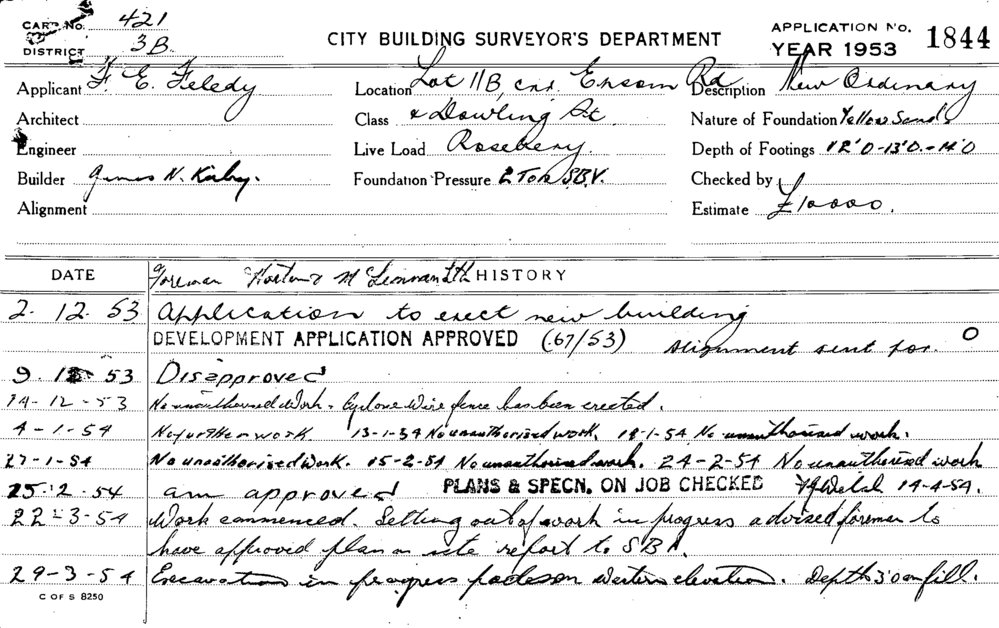 CARD No. 421
DISTRICT 3B
CITY BUILDING SURVEYOR'S DEPARTMENT
APPLICATION No. 1844
YEAR 1953
Applicant F. E. Feledy
Architect
Engineer
Builder James N. Kirby.
Alignment
Location Lot 11B, cnr. Epsom Rd
Class & Dowling St.
Live Load Rosebery.
Foundation Pressure 2 Ton S.B.V.
Description New Ordinary
Nature of Foundation Yellow Sands
Depth of Footings 12'0-13'0-14'0
Checked by
Estimate £10000.
DATE Foreman HISTORY
2. 12. 53 Application to erect new building
DEVELOPMENT APPLICATION APPROVED (67/53) Alignment sent for. O
9. 12 53 Disapproved
14-12-53 No unauthorised Work. Cyclone Wire fence has been erected.
4-1-54 No further work. 13-1-54 No unauthorised work. 18-1-54 No unauthorised work.
27-1-54 No unauthorised Work. 15-2-54 No unauthorised work. 24-2-54 No unauthorised work
25.2.54 am approved PLANS & SPECN. ON JOB CHECKED Welsh 14-4-54.
22-3-54 Work commenced. Setting out of work in progress advised foreman to
have approved plan on site report to S.B.A.
29-3-54 Excavations in progress western elevation. Depth 3'0 on fill.
C OF S 8250